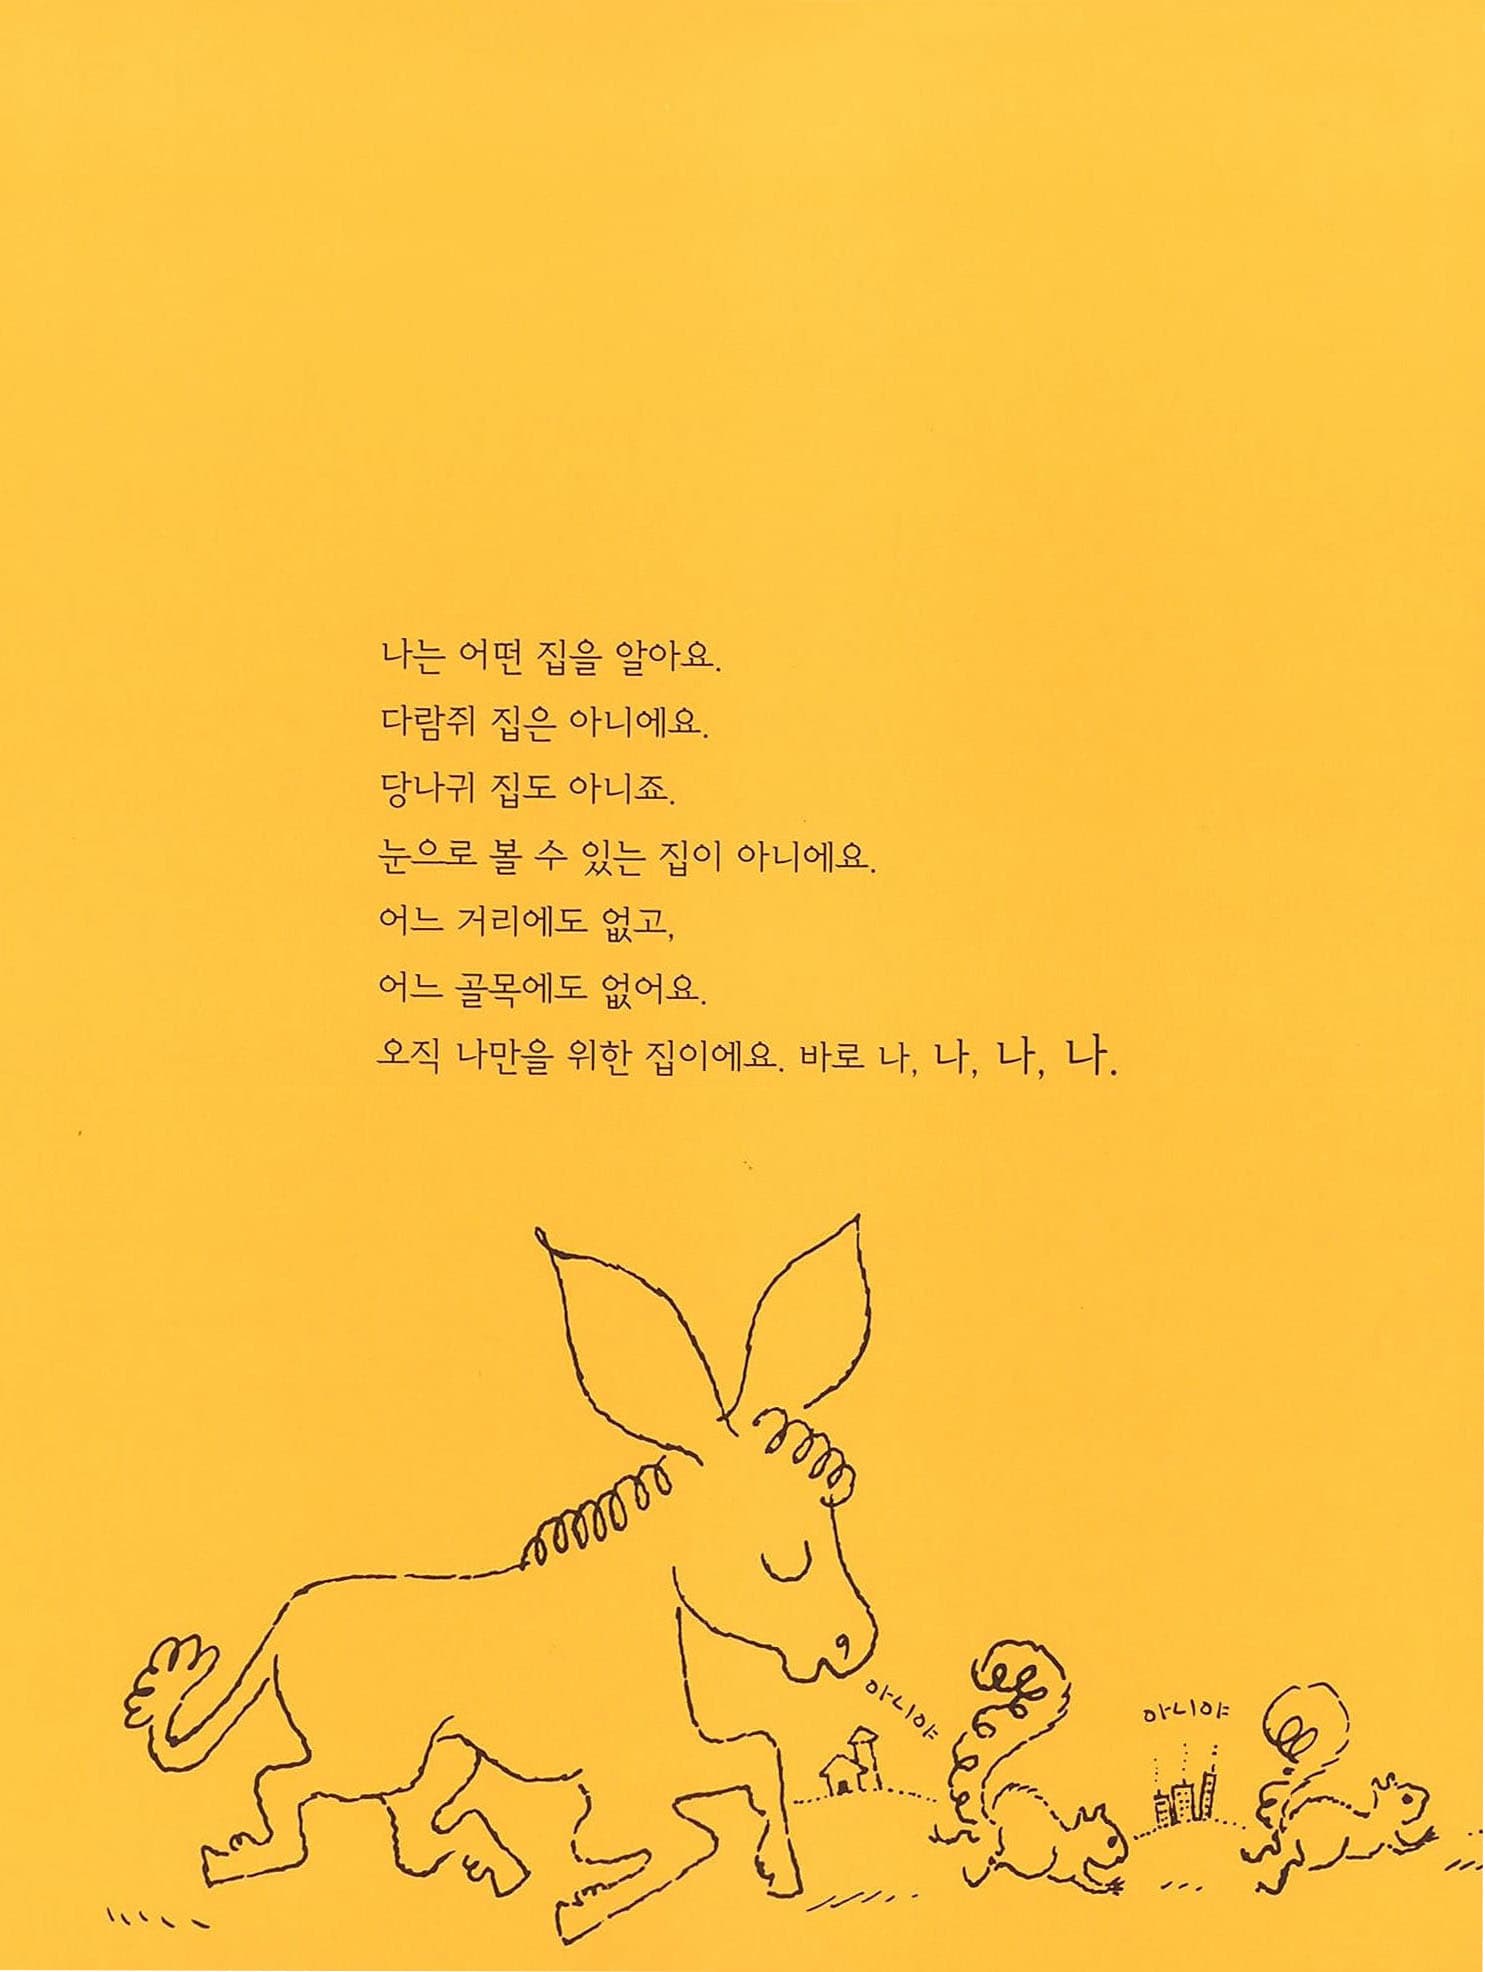 나는 어떤 집을 알아요.
다람쥐 집은 아니에요.
당나귀 집도 아니죠.
눈으로 볼 수 있는 집이 아니에요.
어느 거리에도 없고,
어느 골목에도 없어요.
오직 나만을 위한 집이에요. 바로 나, 나, 나, 나.
아니야
아니야